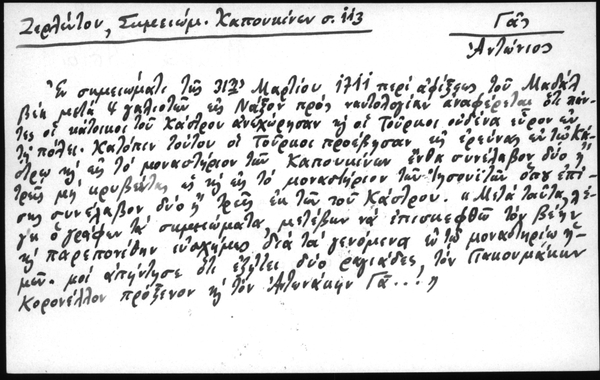 Ζερλέντου, Σημειώμ. Καπουκίνων σ. 113
Γᾶς
Ἀντώνιος
Ἐν σημειώματι τῆς 31ης Μαρτίου 1711 περί ἀφίξεως τοῦ
Βέη μετά 4 γαλιοτῶν εἰς Νάξον πρός ναυτολογίαν ἀναφέρεται ὅτι πάν-
τες οἱ κάτοικοι τοῦ Κάστρου ἀνεχώρησαν κ οἱ Τοῦρκοι οὐδένα εὗρον ἐν
τῇ πόλει. Κατόπιν τούτου οἱ Τοῦρκοι προέβησαν εἰς ἐρεύνας ἐν τῷ Κά-
στρῳ κ εἰς τό μοναστήριον τῶν Καπουκίνων ἔνθα συνέλαβον δύο ἤ
τρεῖς μή κρυβέντας κ εἰς τό μοναστήριον τῶν Ἰησουϊτῶν ὅπου ἐπί-
σης συνέλαβον δύο ἤ τρεῖς ἐκ τῶν τοῦ Κάστρου. « Μετά ταῦτα, λέ-
γει ὁ γράφων τά σημειώματα, μετέβην νά ἐπισκεφθῶ τόν βέην
κ παρεπονέθην εὐσχήμως διά τά γενόμενα ἐν τῷ μοναστηρίῳ ἡ-
μῶν. μοί ἀπήντησε ὅτι ἐζήτει δύο ραγιάδες, τόν Γιακουμάκην
Κορονέλλον πρόξενον κ τόν Ἀντωνάκην Γᾶ...! »